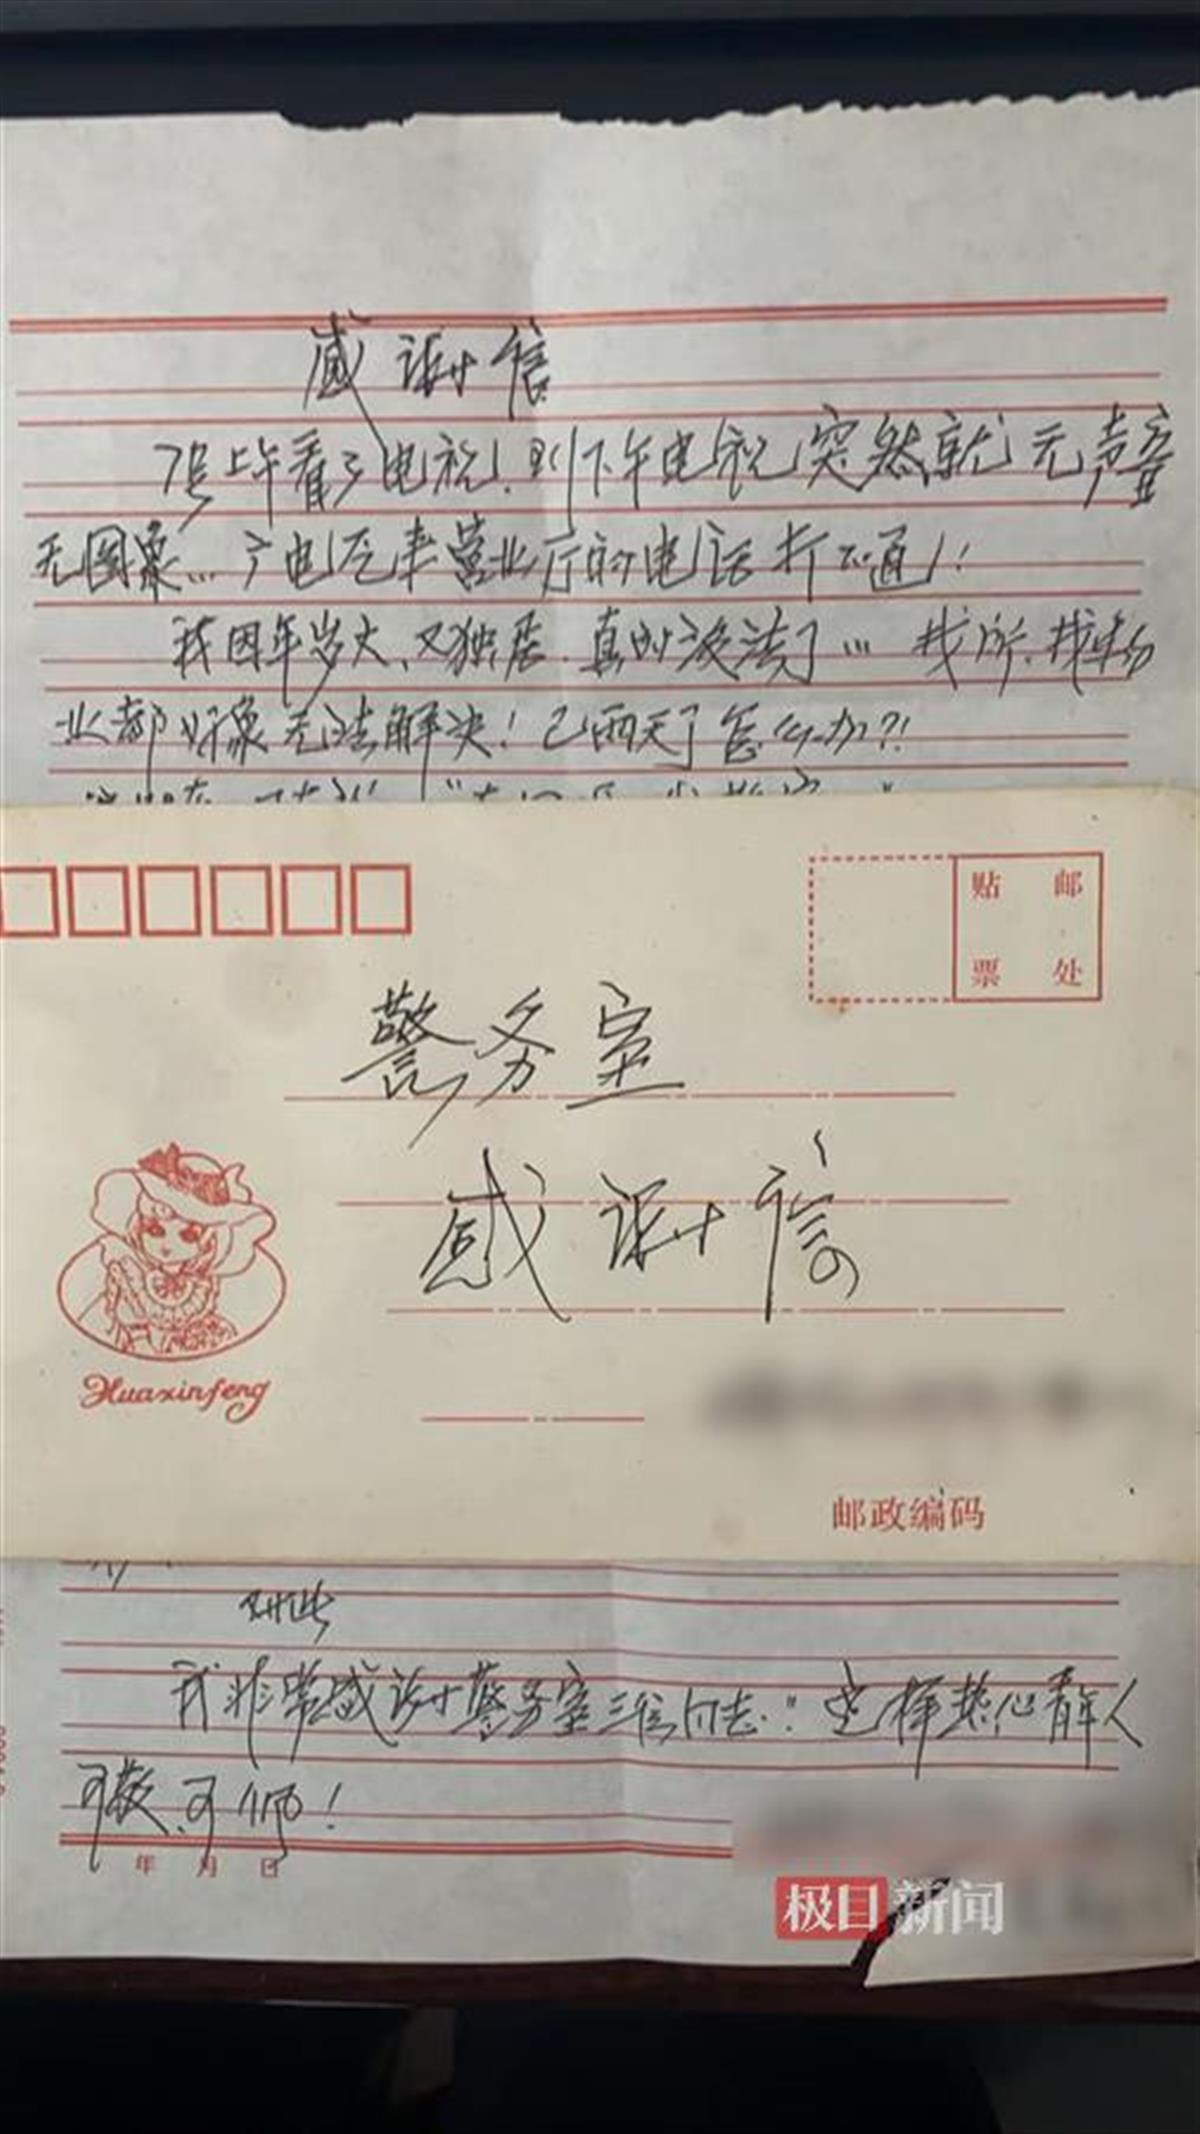 感谢信
7号上午看了电视，到下午电视突然就无声音
无图象…广电
营业厅的电话打不通！
我因年岁大、又独居，真的没法了…找
业都好象无法解决！已两天了怎么办？！
贴邮
票处
警务室
感谢信
Huaxinfeng
邮政编码
对此
我非常感谢警务室三位同志：这样热心青年人
可敬、可师！
年 月 日
极目新闻